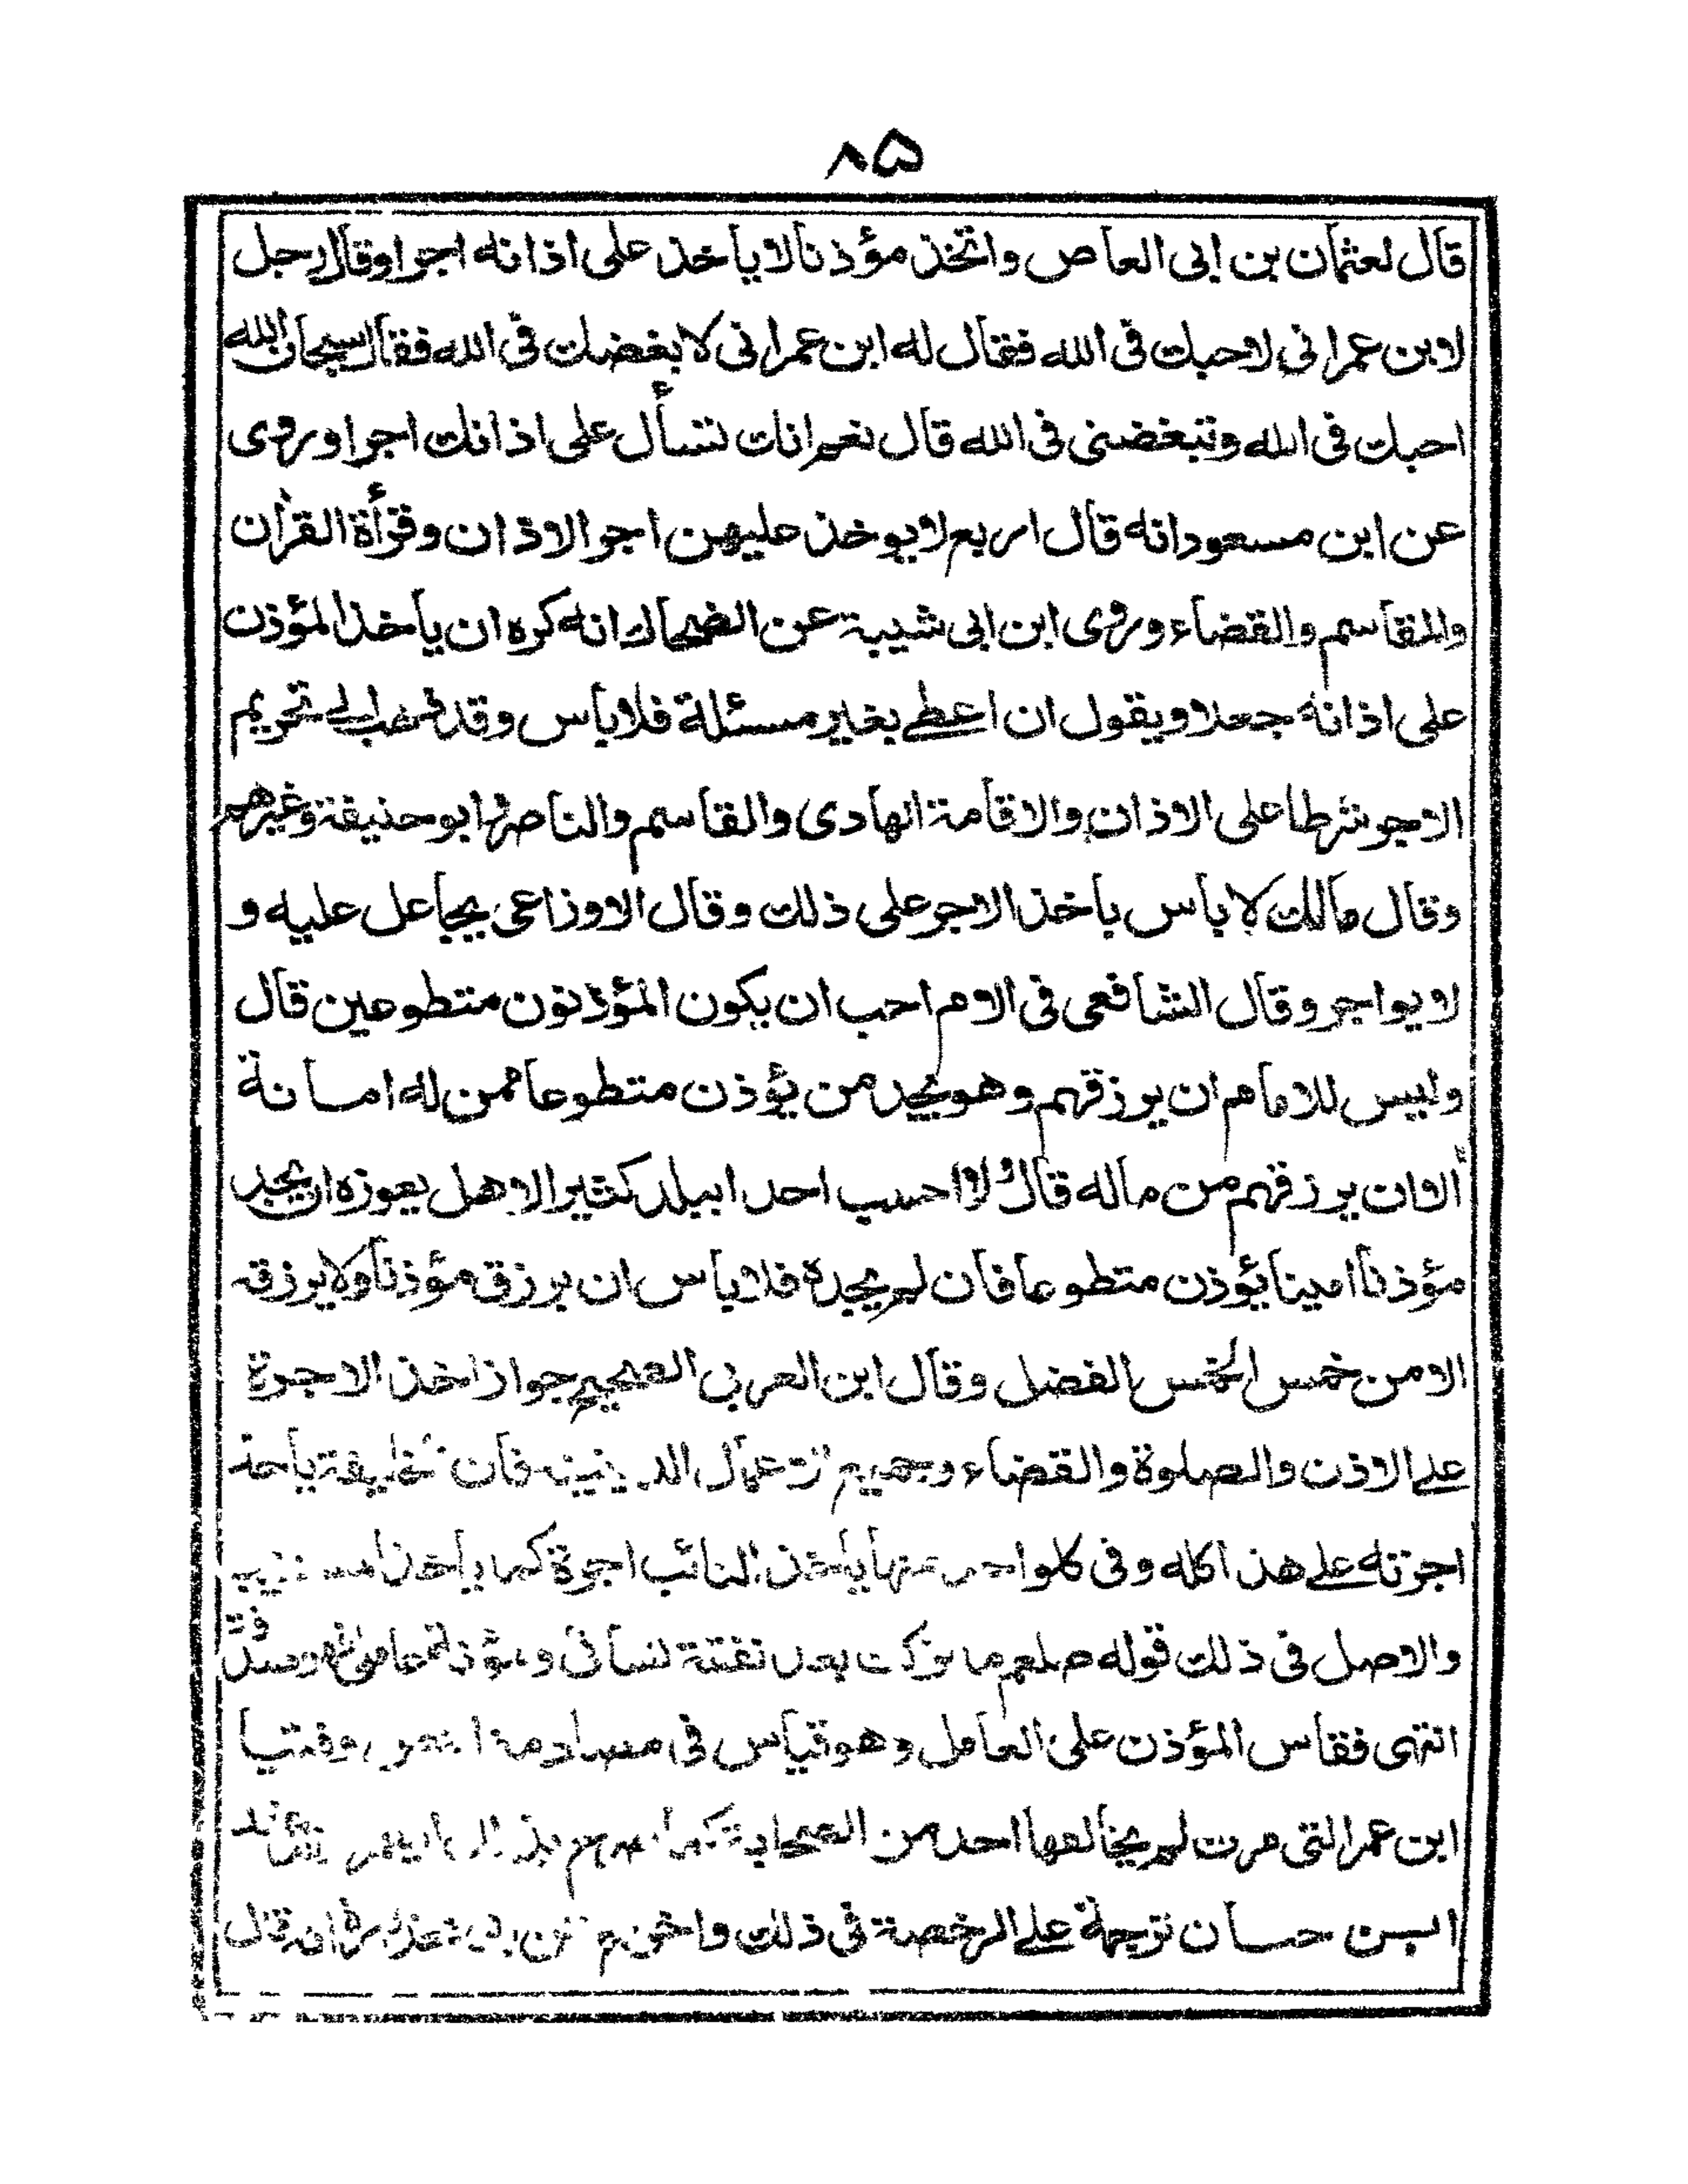 ۸۵
قال لعثمان بن ابی العاص واتخذ مؤذنا لا یأخذ علی اذانه اجرا وقال رجل
لابن عمر انی لاحبك فی الله فقال له ابن عمر انی لابغضك فی الله فقال سبحان الله
احبك فی الله وتبغضنی فی الله قال نعم انك تسأل علی اذانك اجرا وروی
عن ابن مسعود انه قال اربع لا یوخذ علیهن اجر الاذان وقرأة القرأن
والمقاسم والقضاء وروی ابن ابی شیبة عن الضحاك انه کره ان یأخذ المؤذن
علی اذانه جعلا ویقول ان اعطے بغیر مسئلة فلا باس وقد ذهب الی تحریم
الاجر شرطا علی الاذان والاقامة الهادی والقاسم والناصر وابو حنیفة وغیرهم
وقال مالك لا باس باخذ الاجر علی ذلك وقال الاوزاعی یجاعل علیه و
لا یواجر وقال الشافعی فی الام احب ان یکون المؤذنون متطوعین قال
ولیس للامام ان یرزقهم وهو یجد من یؤذن متطوعا ممن له امانة
الا ان یرزقهم من ماله قال ولا احسب احدا ببلد کثیر الاهل یعوزه ان یجد
مؤذنا امینا یؤذن متطوعا فان لم یجده فلا باس ان یرزق مؤذنا ولا یرزقه
الا من خمس الخمس الفضل وقال ابن العربی الصحیح جواز اخذ الاجرة
علے الاذن والصلوة والقضاء وجمیع الاعمال الدینیة فان الخلیفة یأخذ
اجرته علے هذا کله وفی کل واحد منها یأخذ النائب اجرة کما یأخذ
والاصل فی ذلك قوله صلعم ما ترکت بعد نفقة نسائی ومؤنة عاملی فهو صدقة
انتهی فقاس المؤذن علی العامل وهو قیاس فی مصادمة النص وفتیا
ابن عمر التی مرت لم یخالفها احد من الصحابة کما صرح بذلك
ابن حسان ترجمة علے الرخصة فی ذلك واخرج عن انه قال